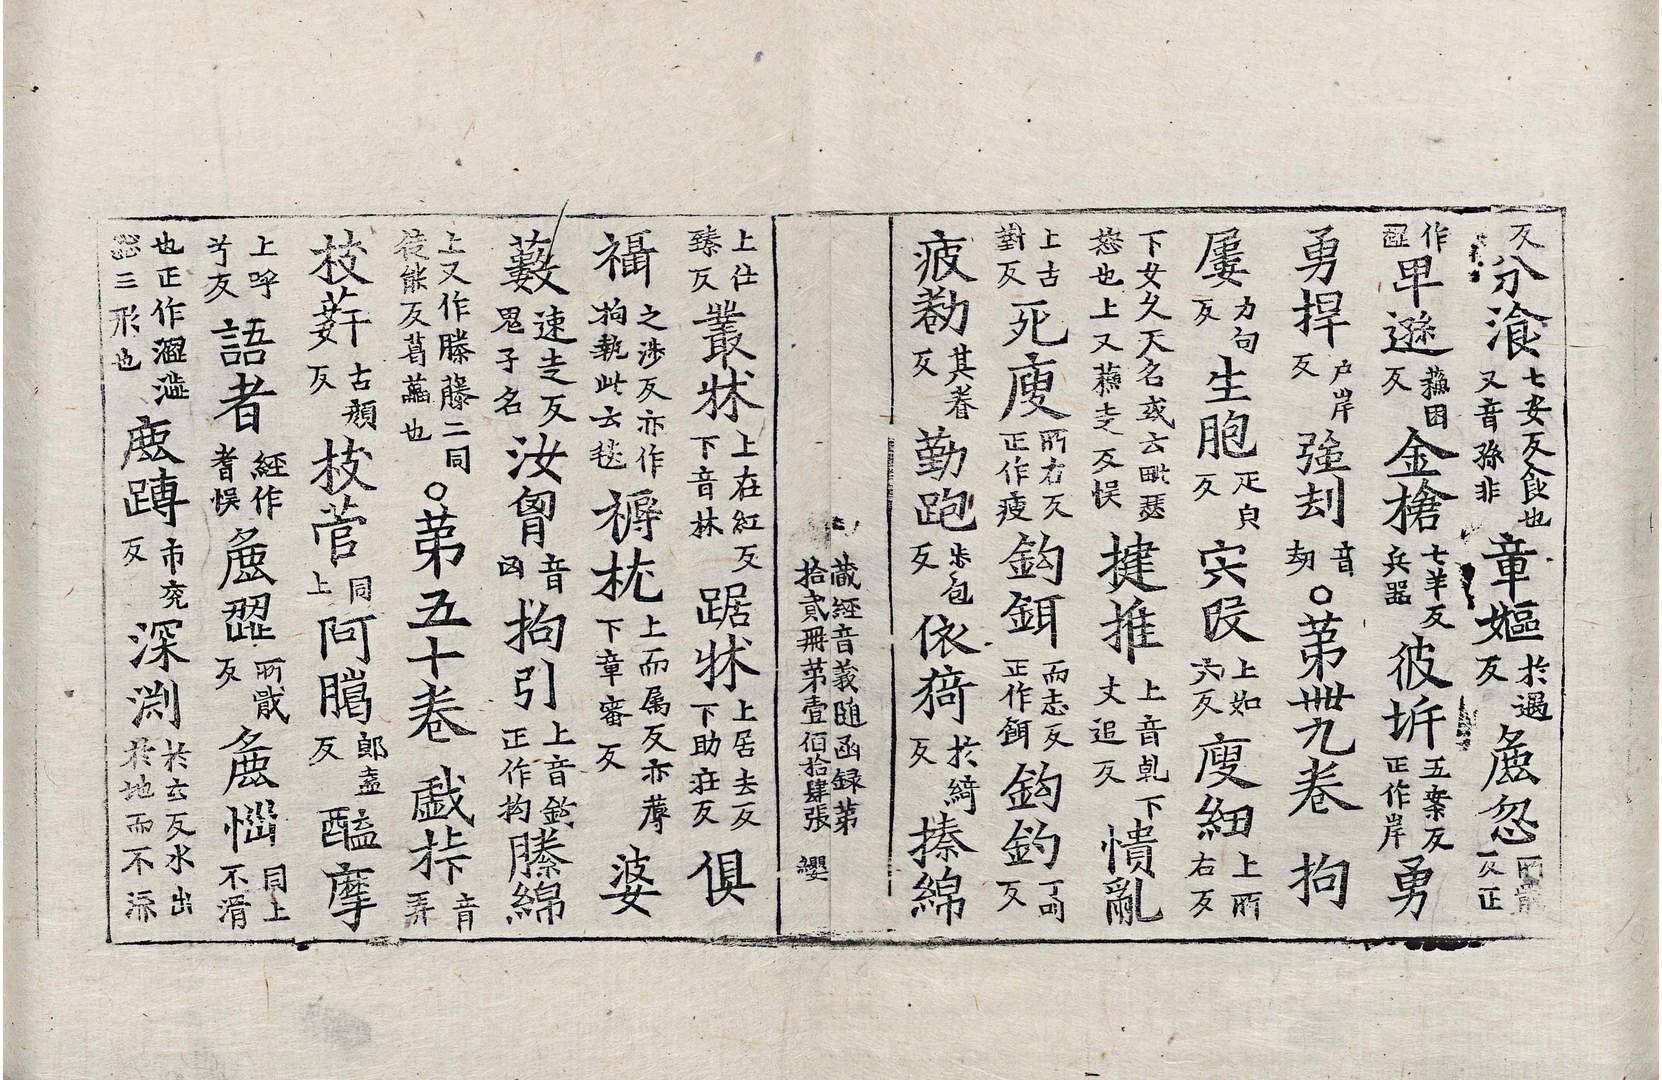 反分飡七安反食也又音孫非章嫗於遇反麁忩
作卑遜蘓困反金槍七羊反兵器彼圻五案反正作岸勇
勇捍户岸反強刦音劫○苐卌九卷拘
屢力句反生胞疋皃反宍叚上如六反廋細上所右反
下女久天名或云毗瑟㤅也上又蘓走反悮揵推上音乹下丈追反憒亂
上古對反死廋所右反正作瘦鈎鉺而志反正作餌鈎釣丁叫反
疲勌其眷反勤跑步包反依猗於綺反搸綿
藏經音義随函録第拾貳冊苐壹佰拾肆張 纓
上仕臻反叢牀上在紅反下音林踞牀上居去反下助庄反俱
襵之涉反亦作拘執此云毬褥枕上而属反亦蓐下章審反婆
藪速走反鬼子名汝胷音凶拘引上音釛正作拘縢綿
上又作䲢藤二同徒能反葛藟也○苐五十卷戱㭓音弄
枝葌古顔反枝菅同上阿臈郎盍反醯摩
上呼兮反語者經作耆悮麁澀所戢反麁㥷同上不滑
也正作濇澁三形也鹿蹲市兖反深渕於玄反水出於地而不流